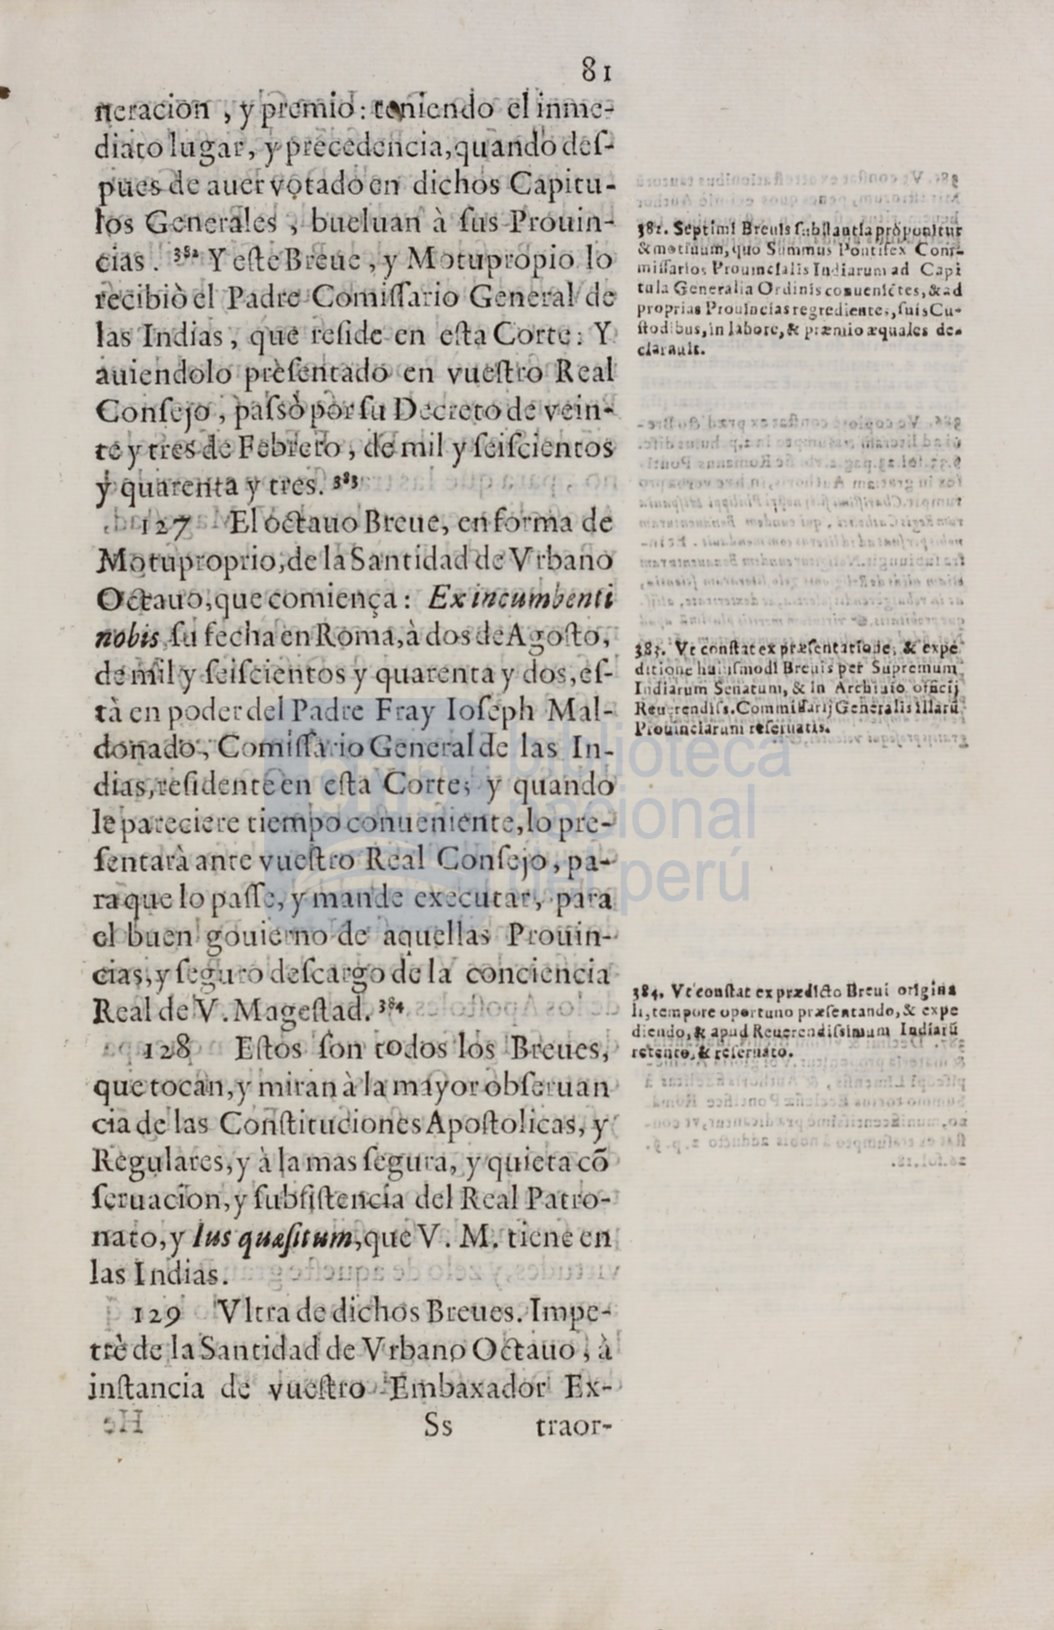 81
neracion, y premio: teniendo el inme-
diato lugar, y precedencia, quando des-
pues de auer votado en dichos Capitu-
los Generales, bueluan à sus Prouin-
cias. 382 Y este Breue, y Motupropio lo
recibiò el Padre Comissario General de
las Indias, que reside en esta Corte: Y
auiendolo presentado en vuestro Real
Consejo, passò por su Decreto de vein-
te y tres de Febrero, de mil y seiscientos
y quarenta y tres. 383
127 El octauo Breue, en forma de
Motuproprio, de la Santidad de Vrbano
Octauo, que comiença: Ex incumbenti
nobis su fecha en Roma, à dos de Agosto,
de mil y seiscientos y quarenta y dos, es-
tà en poder del Padre Fray Ioseph Mal-
donado, Comissario General de las In-
dias, residente en esta Corte; y quando
le pareciere tiempo conueniente, lo pre-
sentarà ante vuestro Real Consejo, pa-
ra que lo passe, y mande executar, para
el buen gouierno de aquellas Prouin-
cias, y seguro descargo de la conciencia
Real de V. Magestad. 384
128 Estos son todos los Breues,
que tocan, y miran à la mayor obseruan
cia de las Constituciones Apostolicas, y
Regulares, y à la mas segura, y quieta cõ
seruacion, y subsistencia del Real Patro-
nato, y Ius quæsitum, que V. M. tiene en
las Indias.
129 Vltra de dichos Breues. Impe-
trè de la Santidad de Vrbano Octauo, à
instancia de vuestro Embaxador Ex-
Ss traor-
382. Septimi Breuis substantia proponitur
& motiuum, quo Summus Pontifex Com-
missarios Prouincialis Indiarum ad Capi
tula Generalia Ordinis conueniẽtes, & ad
proprias Prouincias regredientes, suis Cu-
stodibus, in labore, & præmio æquales de-
clarauit.
383. Vt constat ex præsentatione, & expe
ditione huiusmodi Breuis per Supremum
Indiarum Senatum, & in Archiuio officij
Reuerendiss. Commissarij Generalis illarũ
Prouinciarum reseruatis.
384. Vt constat ex prædicto Breui origina
li, tempore oportuno præsentando, & expe
diendo, & apud Reuerendissimum Indiarũ
retento, & reseruato.
biblioteca
nacional
del perú